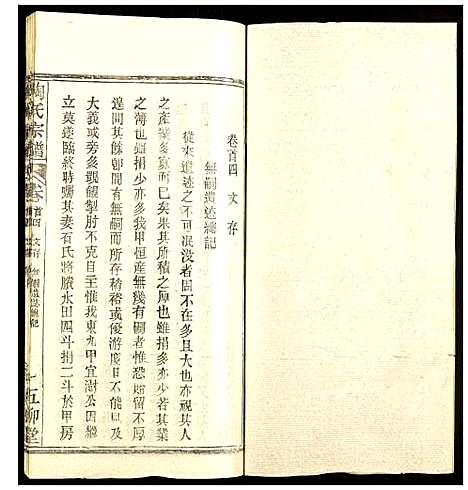 卷首四 文存
無嗣遺迹總記
從來遺迹之不可泯沒者固不在多且大也亦視其人
之產業多寡而已矣果其所積之厚也雖捐少亦多其業
之薄也雖捐少亦多我甲恒產無幾有嗣者惟恐貽留不厚
違問其餘卹間有無嗣而所存稍裕或優游度日不能及
大義或旁多覬覦掣肘不克自主惟我東九甲宜澍公因繼
立莫遂臨終時囑其妻石氏將腴水田四斗捐二斗於甲房
陶氏宗譜
卷首四 文存 無嗣遺迹總記
五柳堂